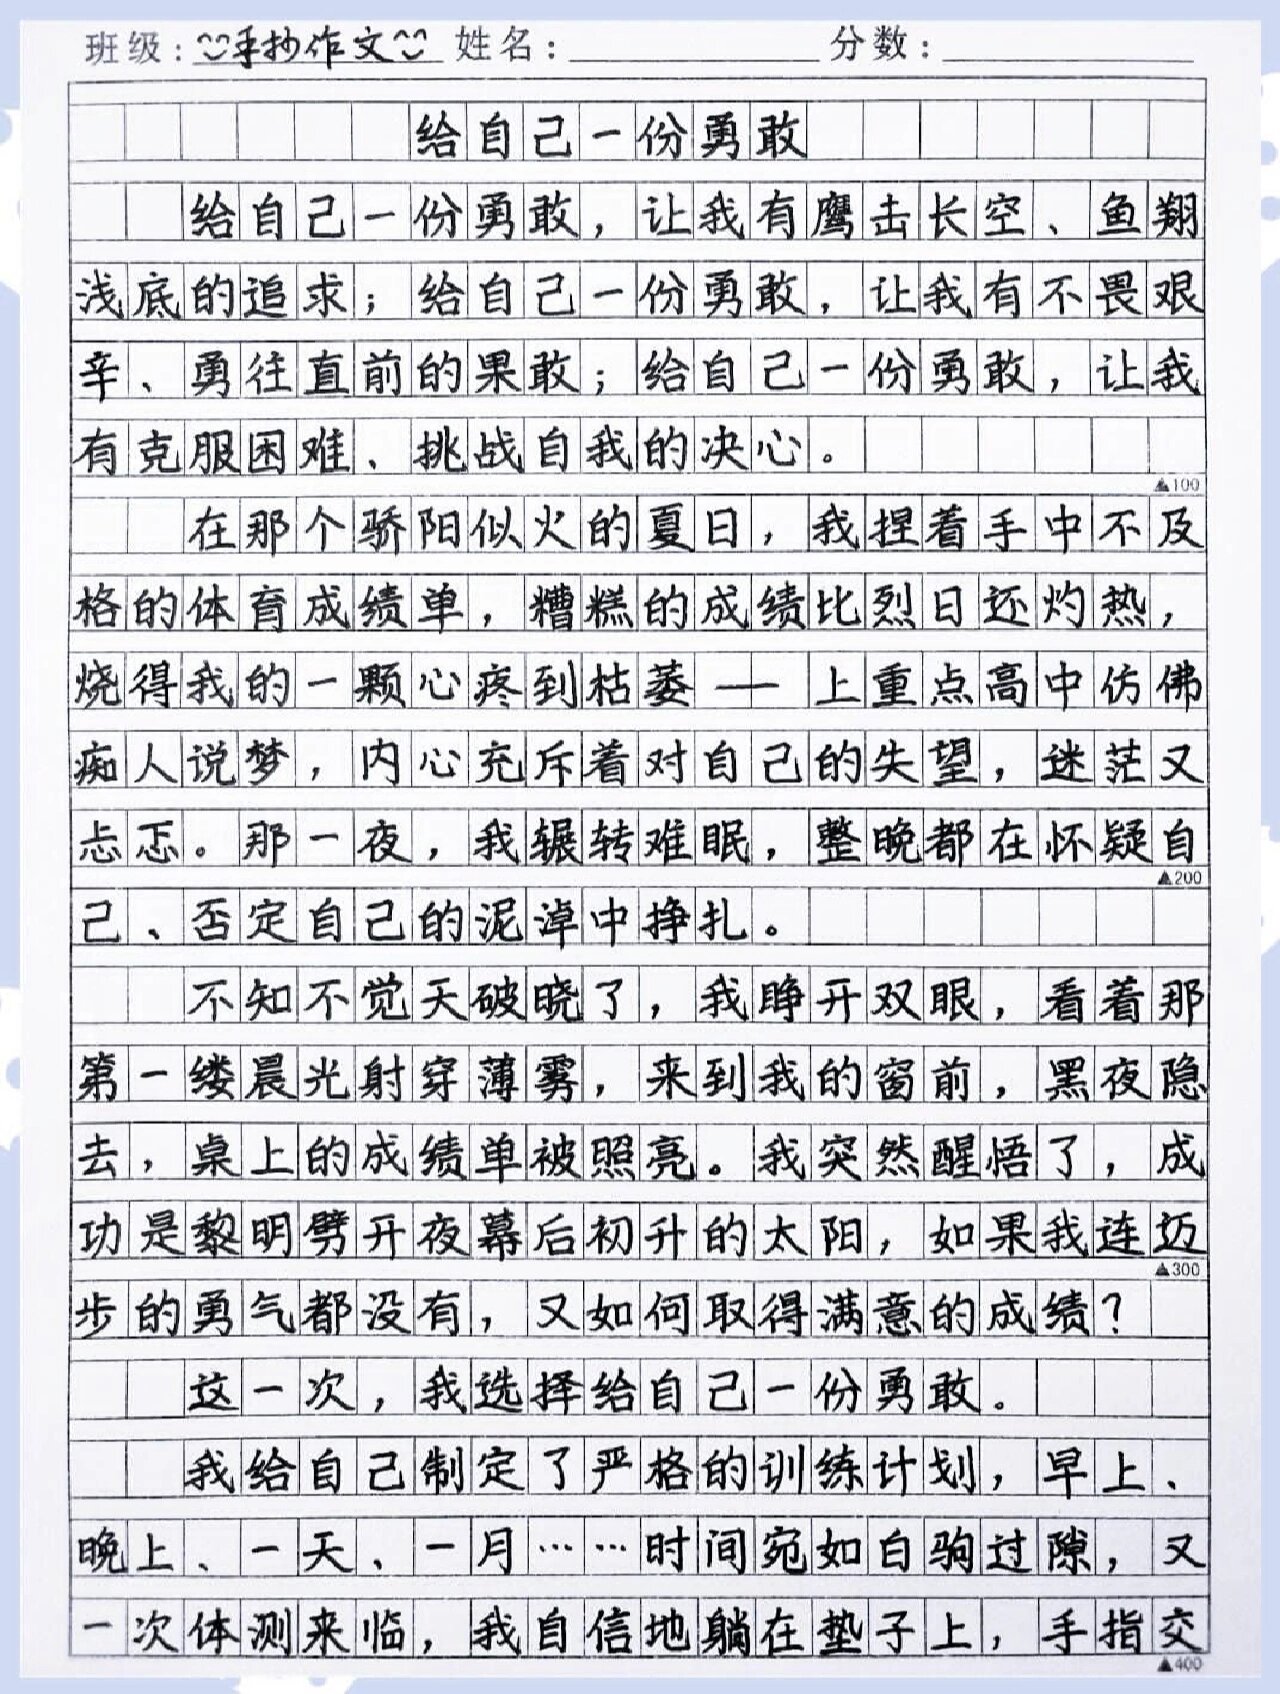 班级:手抄作文 姓名: 分数:
给自己一份勇敢
给自己一份勇敢，让我有鹰击长空、鱼翔
浅底的追求；给自己一份勇敢，让我有不畏艰
辛、勇往直前的果敢；给自己一份勇敢，让我
有克服困难、挑战自我的决心。
▲100
在那个骄阳似火的夏日，我捏着手中不及
格的体育成绩单，糟糕的成绩比烈日还灼热，
烧得我的一颗心疼到枯萎——上重点高中仿佛
痴人说梦，内心充斥着对自己的失望，迷茫又
忐忑。那一夜，我辗转难眠，整晚都在怀疑自
▲200
己、否定自己的泥淖中挣扎。
不知不觉天破晓了，我睁开双眼，看着那
第一缕晨光射穿薄雾，来到我的窗前，黑夜隐
去，桌上的成绩单被照亮。我突然醒悟了，成
功是黎明劈开夜幕后初升的太阳，如果我连迈
▲300
步的勇气都没有，又如何取得满意的成绩？
这一次，我选择给自己一份勇敢。
我给自己制定了严格的训练计划，早上、
晚上、一天、一月……时间宛如白驹过隙，又
一次体测来临，我自信地躺在垫子上，手指交
▲400